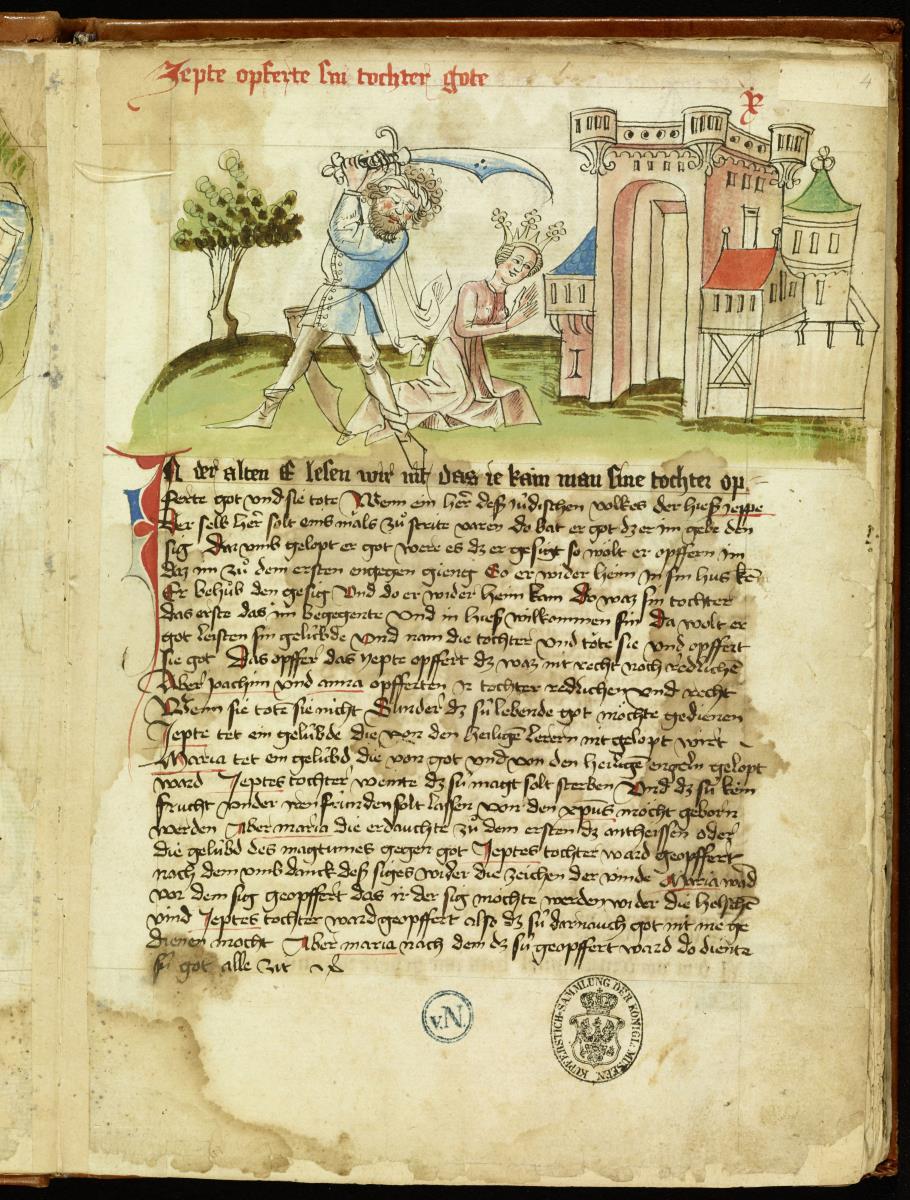 Jepte opferte sin tochter gote
x
4
IN der alten E lesen wir nit das ie kain man sine tochter op
ferte got vnd sie tote Wenn ein her deß Judischen volkes der hieß Jepte
Der selb her solt eins mals zu strite varen do bat er got dz er im gebe den
sig Dar vmb gelopt er got were es dz er gesigt so wolt er opffern im
daz im zu dem ersten engegen gieng So er wider heim in sin hus kem
Er behub den gesig Vnd do er wider heim kam Do waz sin tochter
das erste das im begegente Vnd in hieß wilkommen sin Da wolt er
got leisten sin gelubde Vnd nam die tochter Vnd tote sie vnd opffert
sie got Das opffer das Yepte opffert dz waz nit recht noch redlichen
Aber Joachim vnd anna opfferten ir tochter redlichen vnd recht
Wenn sie toten sie nicht Sunder dz su lebende got mochte gedienen
Jepte tet ein gelubde die von den heiligen lerern nit gelopt wirt
Maria tet ein gelubd die von got vnd von den heilige engeln gelopt
ward Jeptes tochter weinte dz su magt solt sterben Vnd dz su kein
frucht vnder iren frunden solt lassen von den xpus mocht geborn
werden Aber maria die erdauchte zu dem ersten dz antheissen oder
die gelubd des magtumes gegen got Jeptes tochter ward geopffert
nach dem vmb danck deß siges wider die zeichen der vinde Maria ward
vor dem sig geopffert das ir der sig mochte werden wider die helschen
vind Jeptes tochter ward geopffert also dz su darnauch got nit me ge
dienen mocht Aber maria nach dem dz su geopffert ward do diente
su got alle zit
v.N.
KUPFERSTICH-SAMMLUNG DER KÖNIGL. MUSEEN